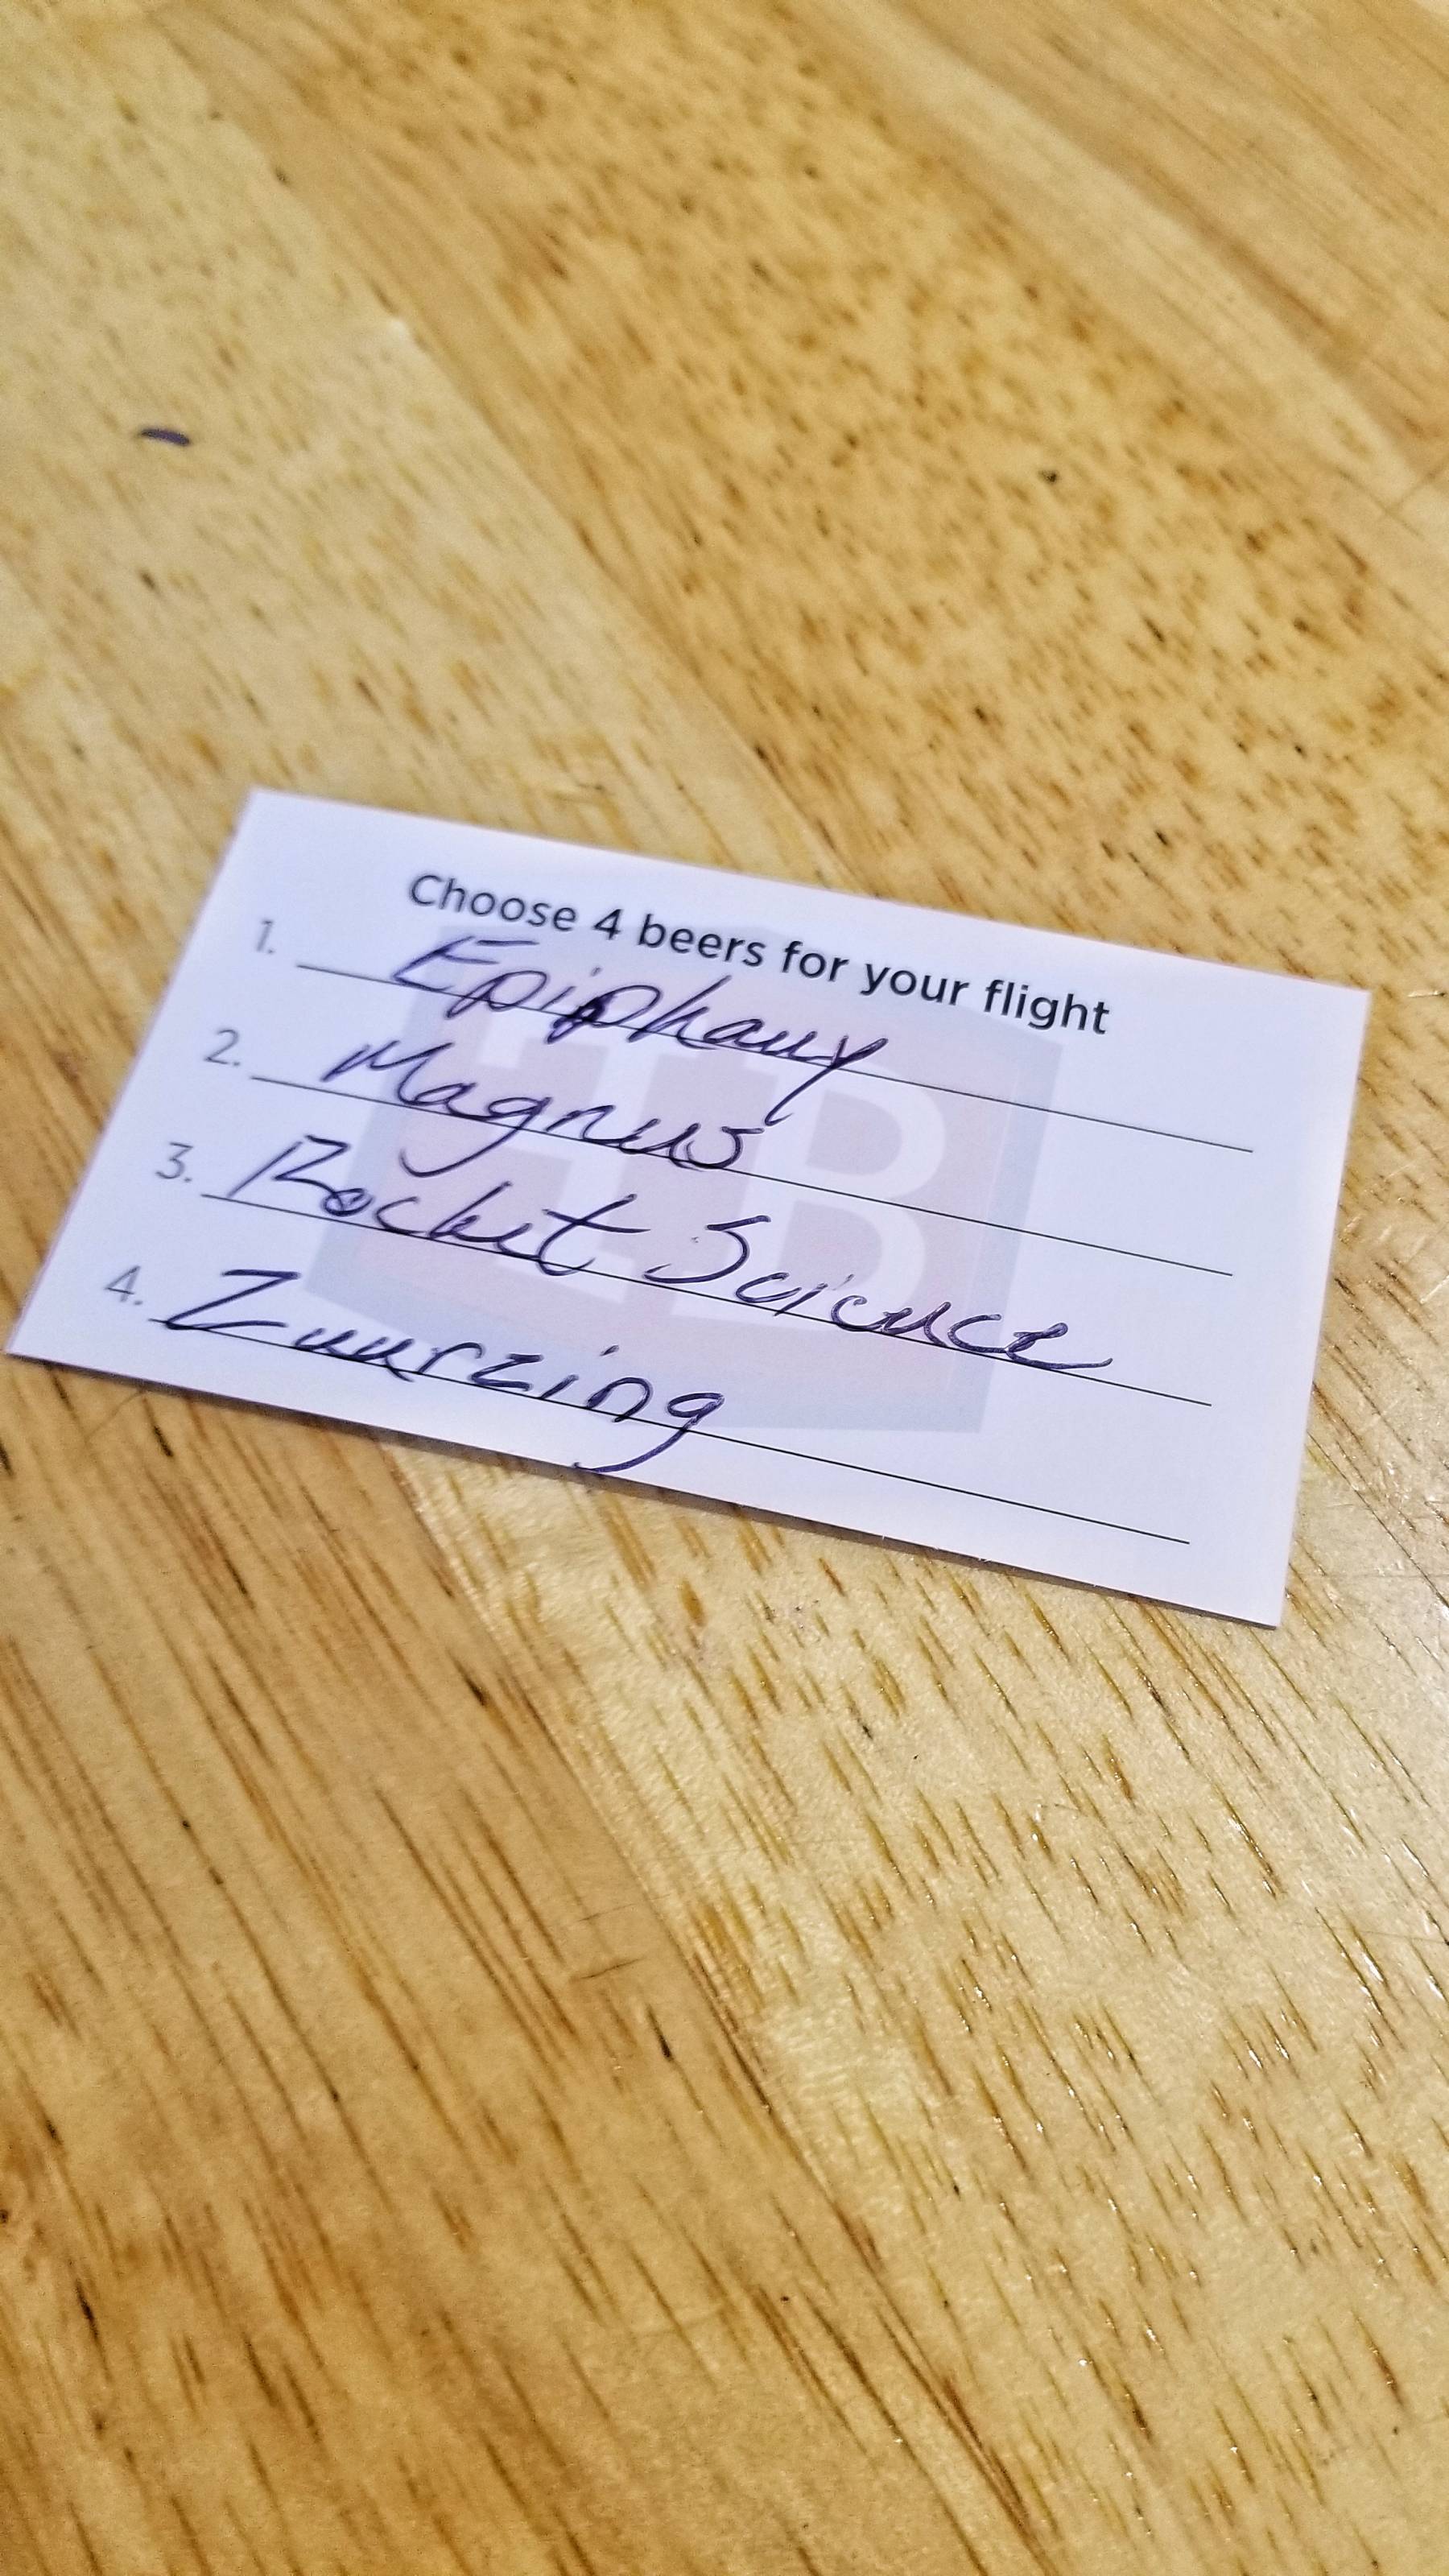 Choose 4 beers for your flight
1. Epiphany
2. Magnus
3. Rocket Science
4. Zuurzing
HB